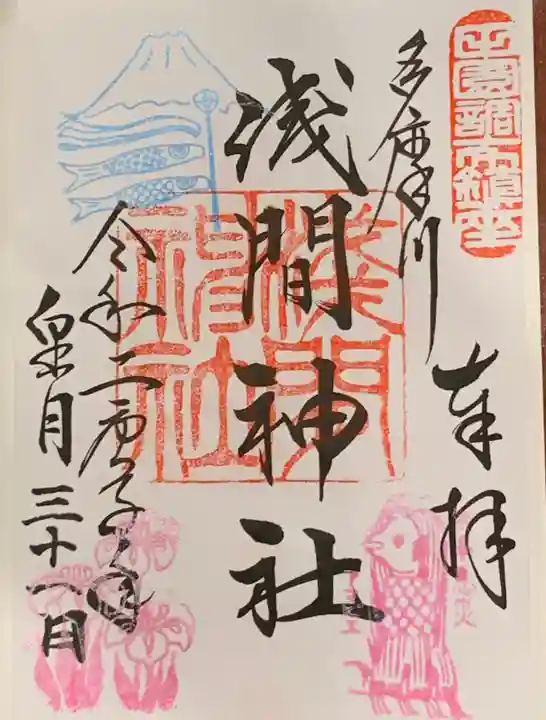 田園調布鎮座
奉拝
多摩川
浅間神社
淺間
神社
令和二庚子年
皐月三十一日